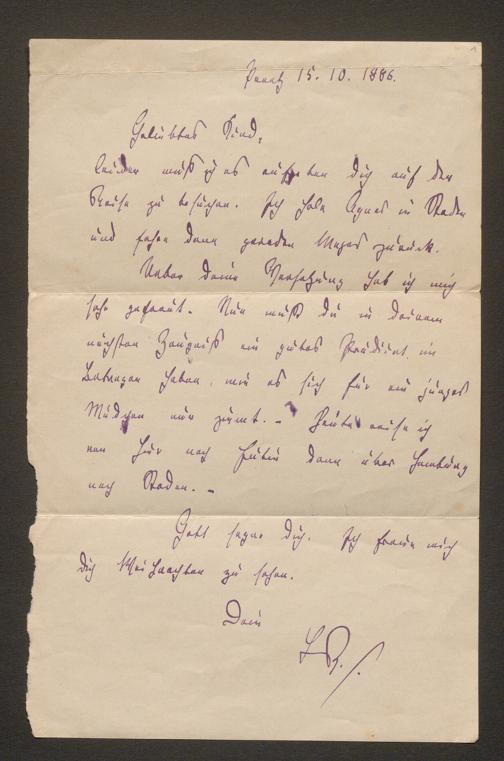 15. 10. 1886.
Geliebtes Kind,
leider muß ich es aufgeben dich auf der
Reise zu besuchen. Ich hole Agnes in Baden
und fahre dann geraden Weges zurück.
Ueber deine Versetzung hab ich mich
sehr gefreut. Nun mußt du in deinem
nächsten Zeugniß ein gutes Prädicat im
Betragen haben, wie es sich für ein junges
Mädchen nur ziemt. – Heute reise ich
von hier nach Eutin dann über Hamburg
nach Baden. –
Gott segne dich. Ich freue mich
dich Weihnachten zu sehen.
Dein